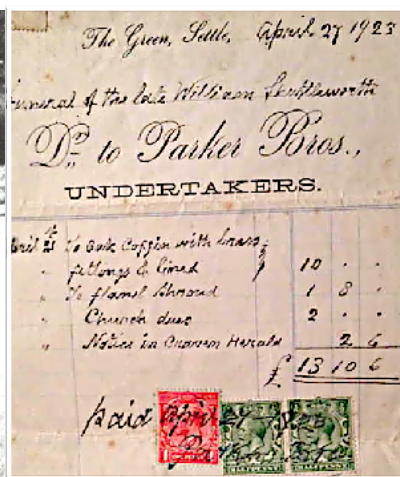 The Green, Settle, April 27 1923
Funeral of the late William Shuttleworth
Dr. to Parker Bros.,
UNDERTAKERS.
April 21 To Oak Coffin with brass
" fittings & lined 10 . .
" To flanel Shroud 1 8 .
" Church dues 2 . .
" Notice in Craven Herald 2 6
£ 13 10 6
paid April 27 1923
Parker Bros
HALFPENNY HALFPENNY